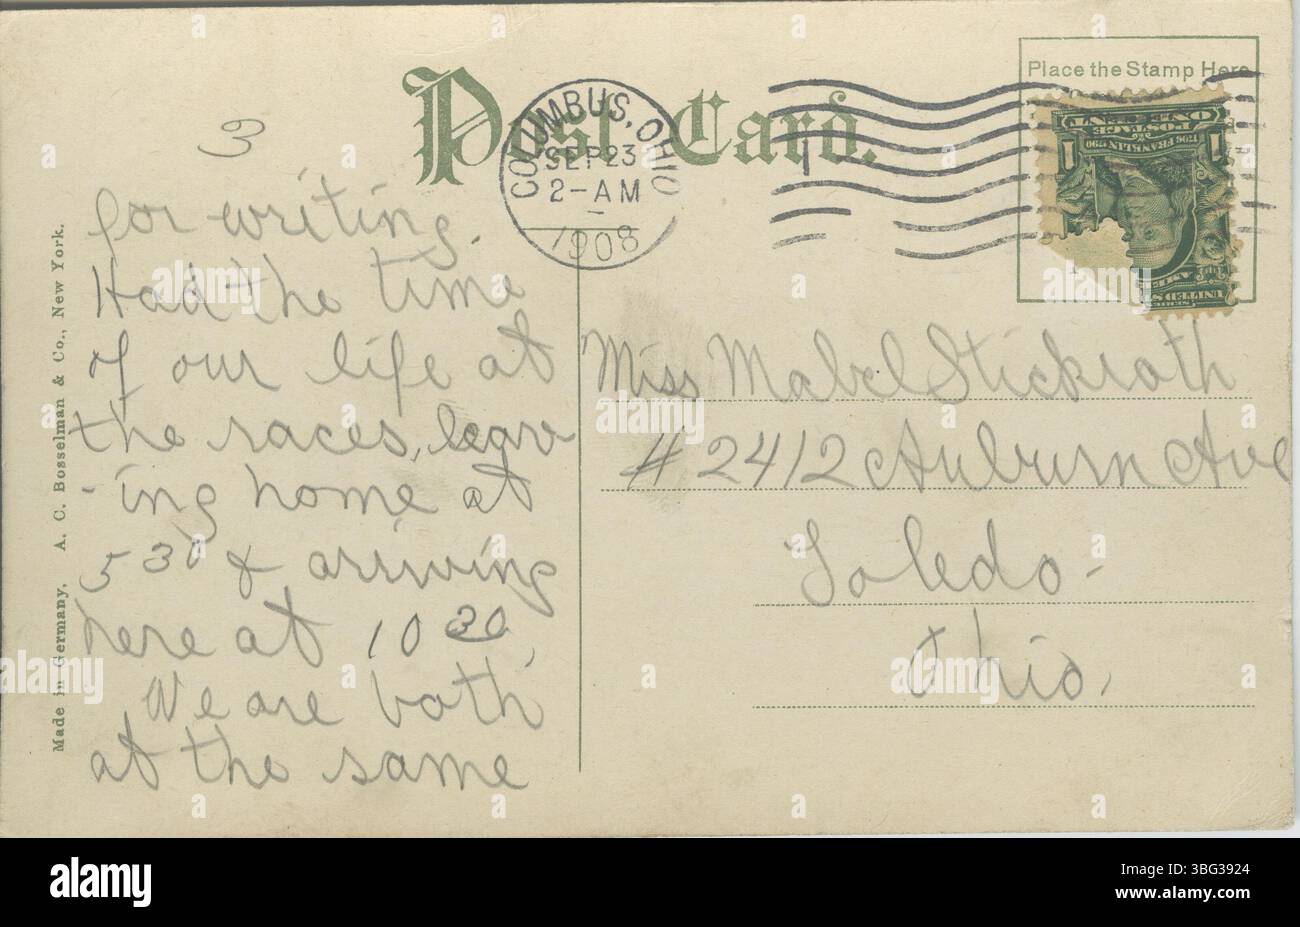 Post Card.
Place the Stamp Here
COLUMBUS, OHIO
SEP 23
2-AM
1908
SERIES 1902
UNITED STATES
1 1
1706 FRANKLIN 1790
POSTAGE
ONE CENT
3
for writing.
Had the time
of our life at
the races, leav
-ing home at
5 30 & arriving
here at 10 30.
We are both
at the same
Miss Mabel Stickrath
# 2412 Auburn Ave
Toledo-
Ohio.
Made in Germany. A. C. Bosselman & Co., New York.
a alamy
alamy
Image ID: 3BG3924
www.alamy.com